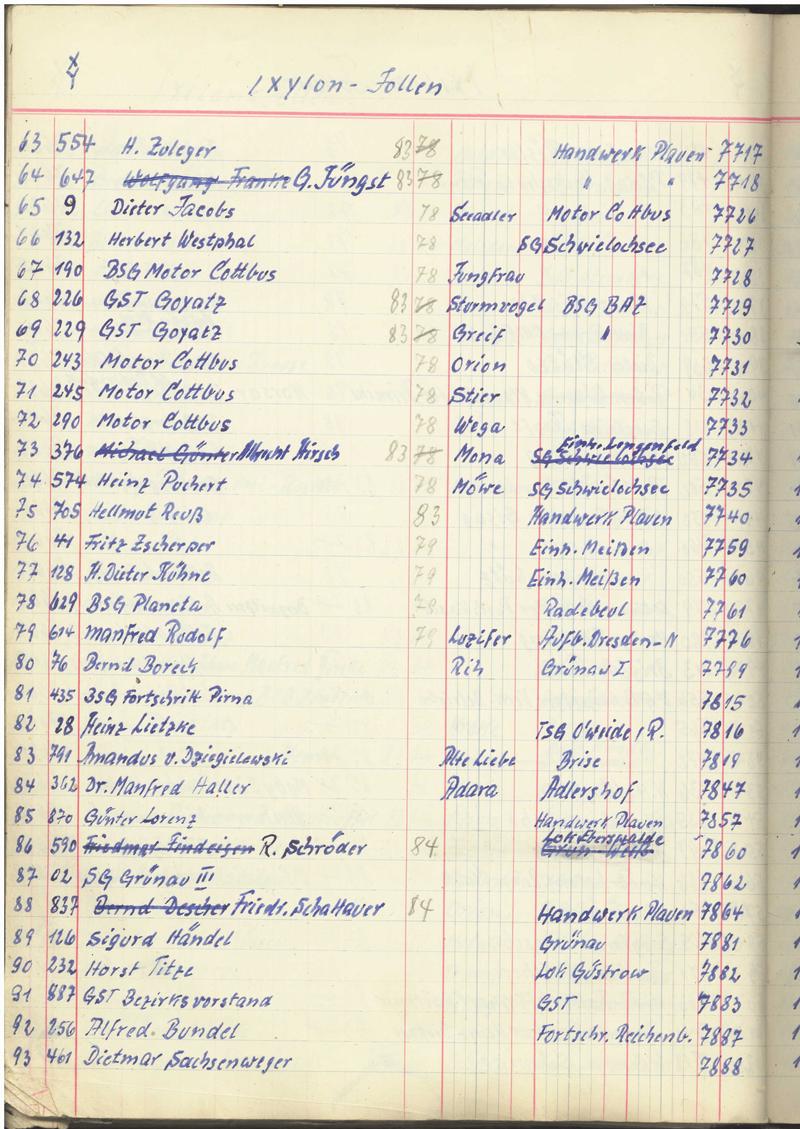 X
Y
Ixylon-Jollen
63 554 H. Zuleger 83 78 Handwerk Plauen 7717
64 647 Wolfgang Franke G. Jüngst 83 78 " " 7718
65 9 Dieter Jacobs 78 Seeadler Motor Cottbus 7726
66 132 Herbert Westphal 78 SG Schwielochsee 7727
67 190 BSG Motor Cottbus 78 Jungfrau 7728
68 226 GST Goyatz 83 78 Sturmvogel BSG BAZ 7729
69 229 GST Goyatz 83 78 Greif " 7730
70 243 Motor Cottbus 78 Orion 7731
71 245 Motor Cottbus 78 Stier 7732
72 290 Motor Cottbus 78 Wega 7733
Einh. Lengenfeld
73 376 Michael Günter Albrecht Hirsch 83 78 Mona SG Schwielochsee 7734
74 574 Heinz Puchert 78 Möwe SG Schwielochsee 7735
75 705 Hellmut Reuß 83 Handwerk Plauen 7740
76 41 Fritz Zscherper 79 Einh. Meißen 7759
77 128 H. Dieter Kühne 79 Einh. Meißen 7760
78 629 BSG Planeta 78 Radebeul 7761
79 614 Manfred Rudolf 79 Luzifer Aufb. Dresden-N 7776
80 76 Bernd Boreck Rih Grünau I 7789
81 435 BSG Fortschritt Pirna 7815
82 28 Heinz Lietzke TSG O'weide/R. 7816
83 791 Amandus v. Dziegielewski Alte Liebe Brise 7819
84 362 Dr. Manfred Haller Adara Adlershof 7847
85 870 Günter Lorenz Handwerk Plauen 7857
Lok Eberswalde
86 590 Friedmar Findeisen R. Schröder 84 7860
87 02 SG Grünau III 7862
88 837 Bernd Descher Friedr. Schattauer 84 Handwerk Plauen 7864
89 126 Sigurd Händel Grünau 7881
90 232 Horst Titze Lok Güstrow 7882
91 887 GST Bezirksvorstand GST 7883
92 256 Alfred Bundel Fortschr. Reichenb. 7887
93 461 Dietmar Sachsenweger 7888